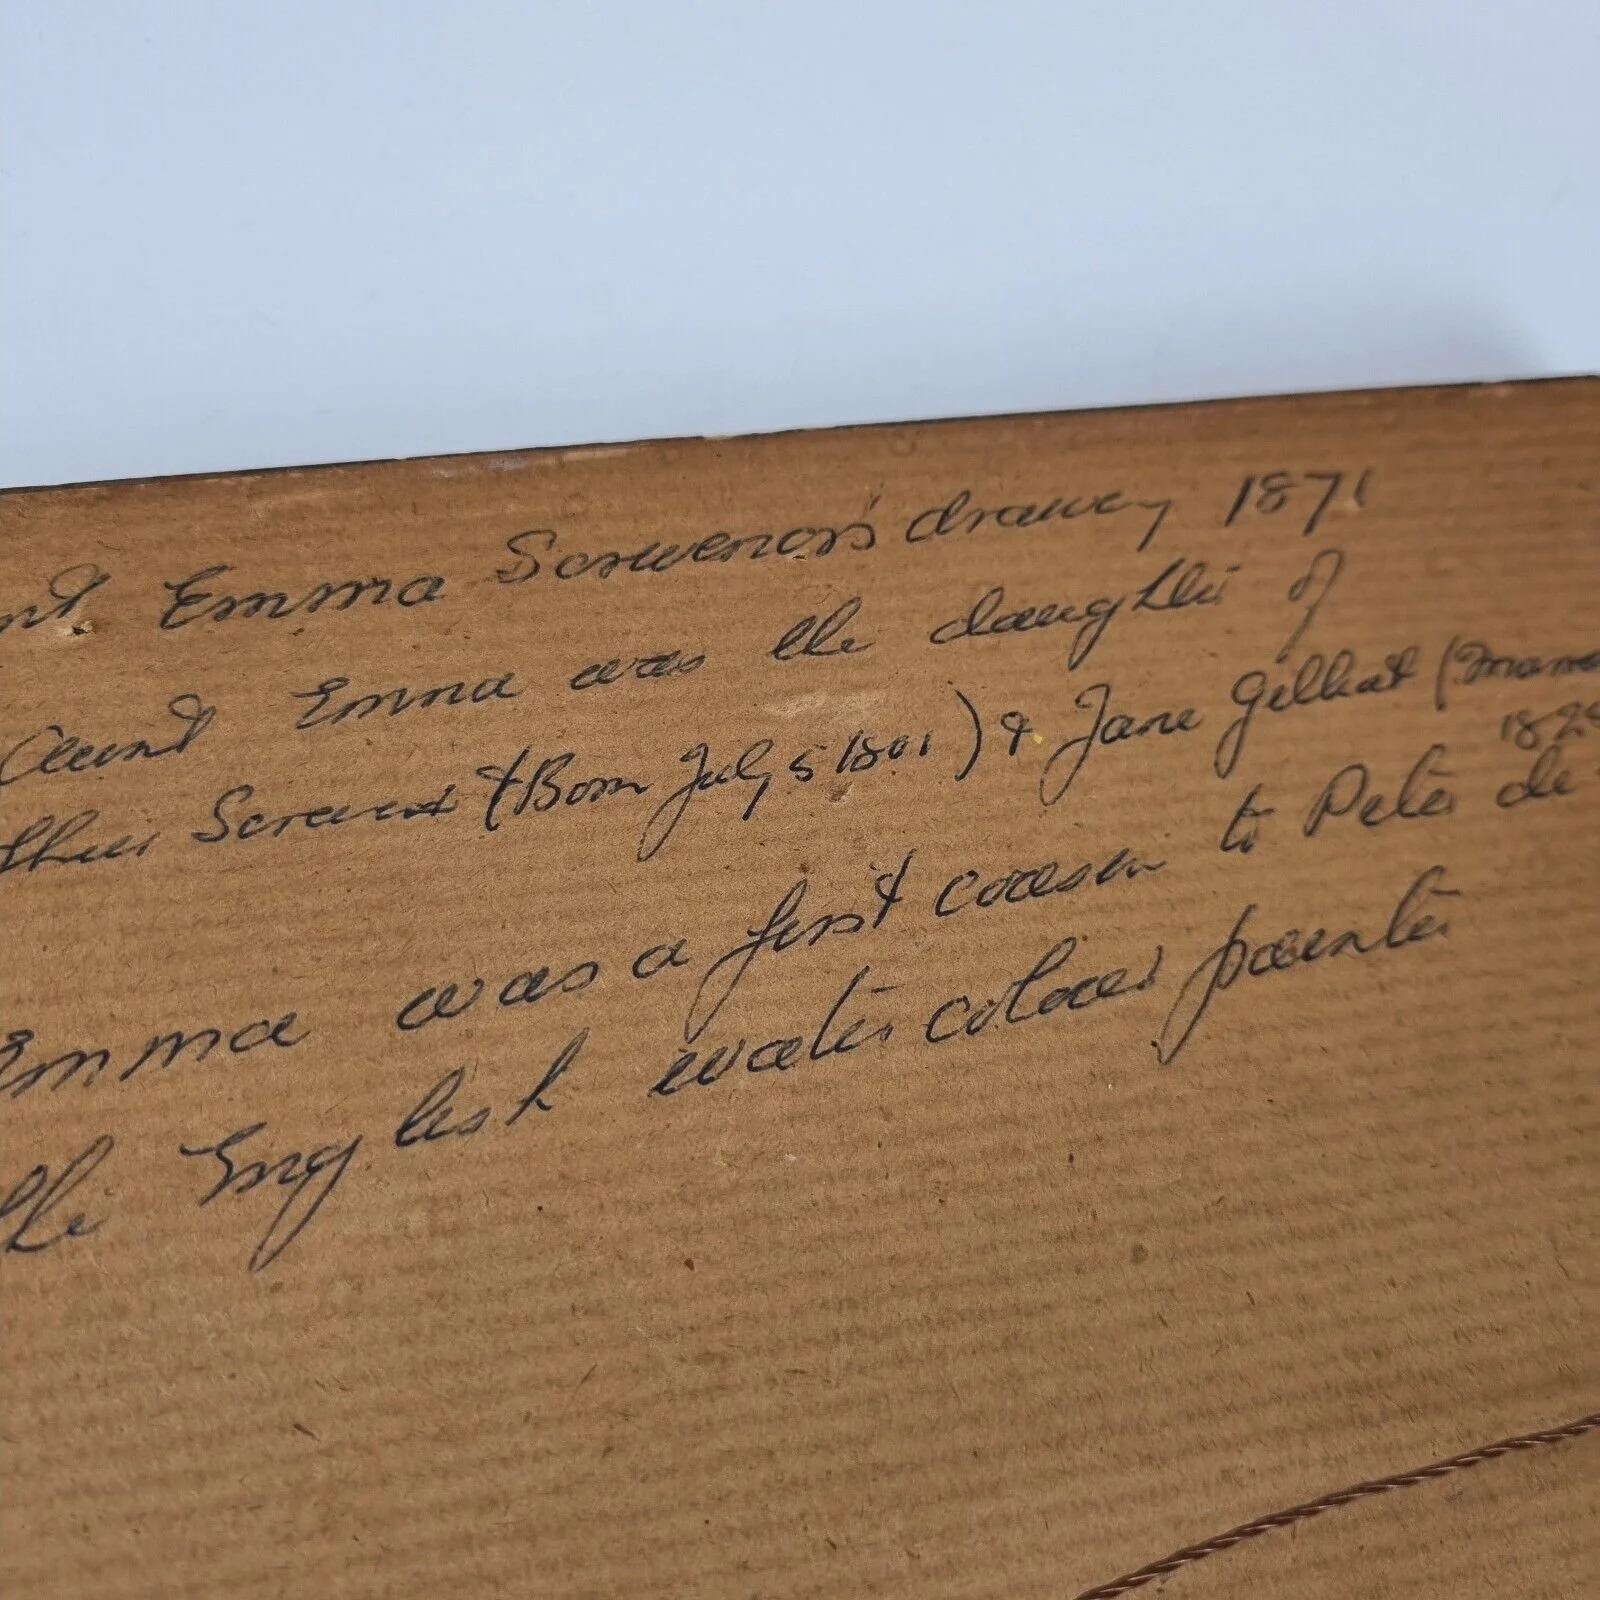 Emma Scrivenor's drawing 1871
Aunt Emma was the daughter of
(Born July 5 1801) & Jane Gilliat (
1829
Emma was a first cousin to Peter de
the English water colour painter